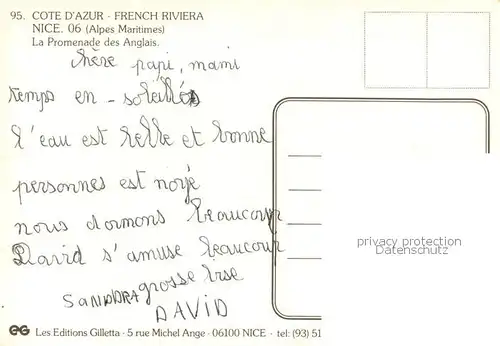 95. COTE D'AZUR - FRENCH RIVIERA
NICE. 06 (Alpes Maritimes)
La Promenade des Anglais.
chère papi, mami
temps en - soleillé
l'eau est belle et bonne
personnes est noyé
nous dormons beaucoup
David s'amuse beaucoup
grosse bise
SANDDRA
DAVID
privacy protection
Datenschutz
EG Les Editions Gilletta - 5 rue Michel Ange - 06100 NICE - tel: (93) 51